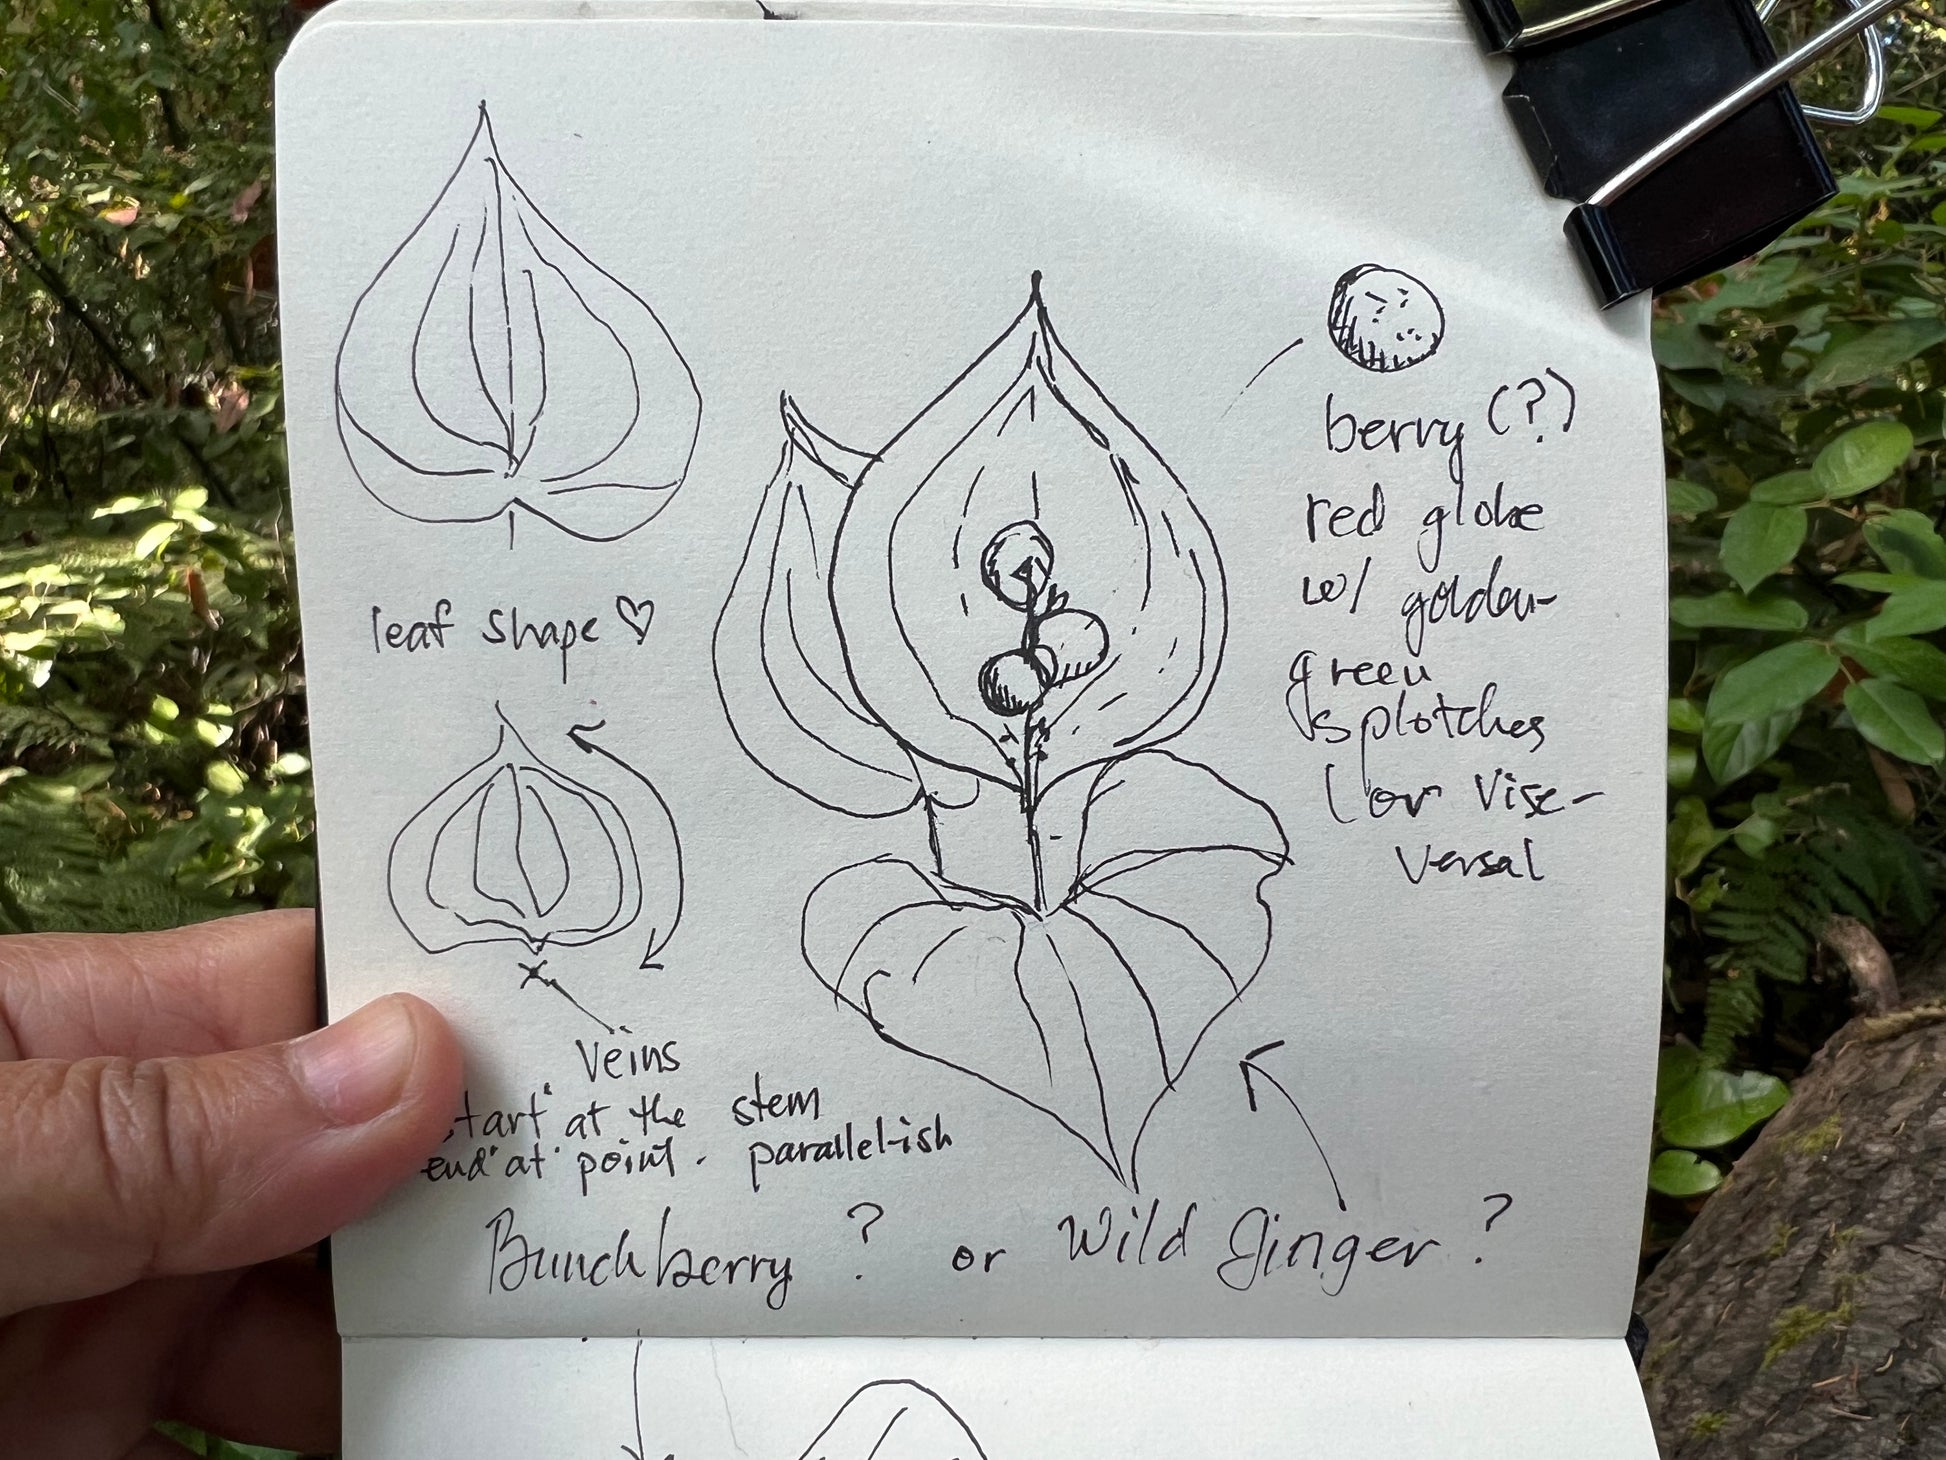 leaf shape ♡
berry (?)
red globe
w/ golden-
green
splotches
(or vise-
versa)
Veins
"start" at the stem
"end" at point. parallel-ish
Bunchberry ? or Wild Ginger ?